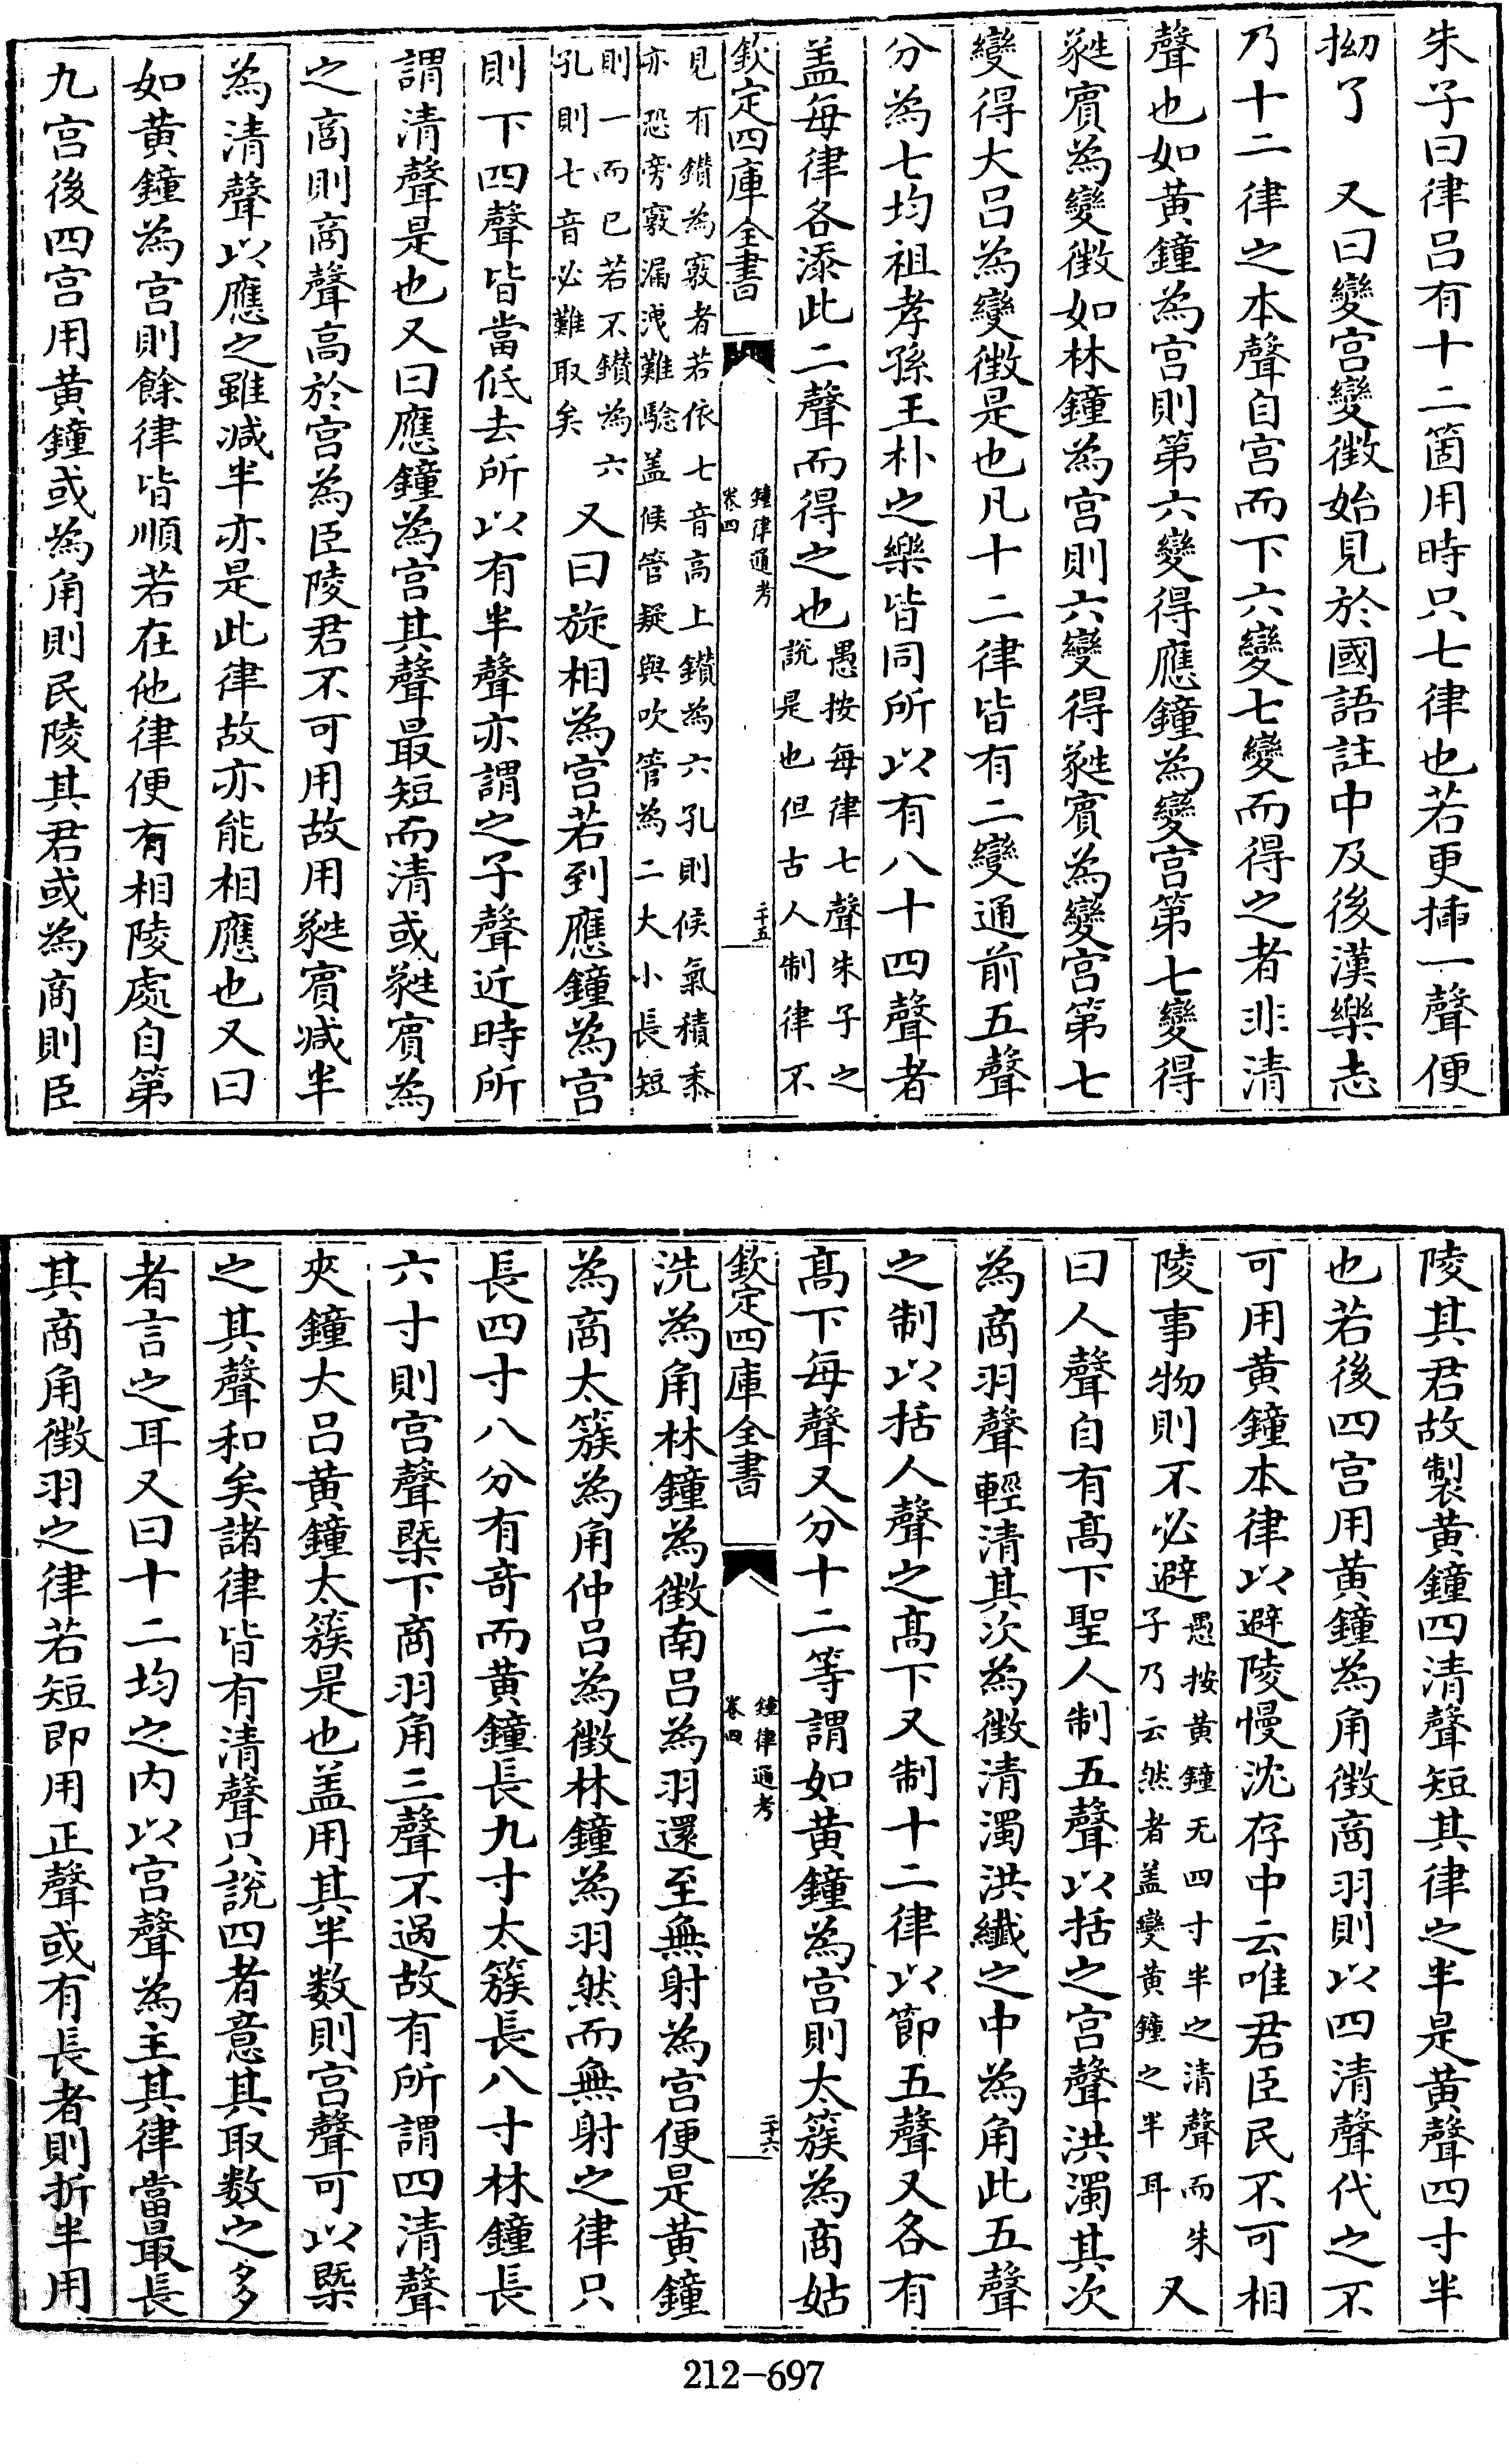 朱子曰律呂有十二箇用時只七律也若更揷一聲便
拗了　又曰變宮變徵始見於國語註中及後漢樂志
乃十二律之本聲自宮而下六變七變而得之者非清
聲也如黃鐘為宮則第六變得應鐘為變宮第七變得
蕤賓為變徵如林鐘為宮則六變得蕤賓為變宮第七
變得大呂為變徵是也凡十二律皆有二變通前五聲
分為七均祖孝孫王朴之樂皆同所以有八十四聲者
盖每律各添此二聲而得之也愚按每律七聲朱子之
說是也但古人制律不
欽定四庫全書
鐘律通考
卷四
二十五
見有鑽為竅者若依七音高上鑽為六孔則候氣積黍
亦恐旁竅漏洩難驗盖候管疑與吹管為二大小長短
則一而已若不鑽為六
孔則七音必難取矣　又曰旋相為宮若到應鐘為宮
則下四聲皆當低去所以有半聲亦謂之子聲近時所
謂清聲是也又曰應鐘為宮其聲最短而清或蕤賓為
之商則商聲高於宮為臣陵君不可用故用蕤賓減半
為清聲以應之雖減半亦是此律故亦能相應也又曰
如黃鐘為宮則餘律皆順若在他律便有相陵處自第
九宮後四宮用黃鐘或為角則民陵其君或為商則臣
陵其君故製黃鐘四清聲短其律之半是黃聲四寸半
也若後四宮用黃鐘為角徵商羽則以四清聲代之不
可用黃鐘本律以避陵慢沈存中云唯君臣民不可相
陵事物則不必避愚按黃鐘无四寸半之清聲而朱
子乃云然者盖變黃鐘之半耳　又
曰人聲自有高下聖人制五聲以括之宮聲洪濁其次
為商羽聲輕清其次為徵清濁洪纖之中為角此五聲
之制以括人聲之高下又制十二律以節五聲又各有
高下每聲又分十二等謂如黃鐘為宮則太簇為商姑
欽定四庫全書
鐘律通考
卷四
二十六
洗為角林鐘為徵南呂為羽還至無射為宮便是黃鐘
為商太簇為角仲呂為徵林鐘為羽然而無射之律只
長四寸八分有竒而黃鐘長九寸太簇長八寸林鐘長
六寸則宮聲槩下商羽角三聲不過故有所謂四清聲
夾鐘大呂黃鐘太簇是也盖用其半数則宮聲可以槩
之其聲和矣諸律皆有清聲只說四者意其取数之多
者言之耳又曰十二均之内以宮聲為主其律當最長
其商角徵羽之律若短即用正聲或有長者則折半用
212-697